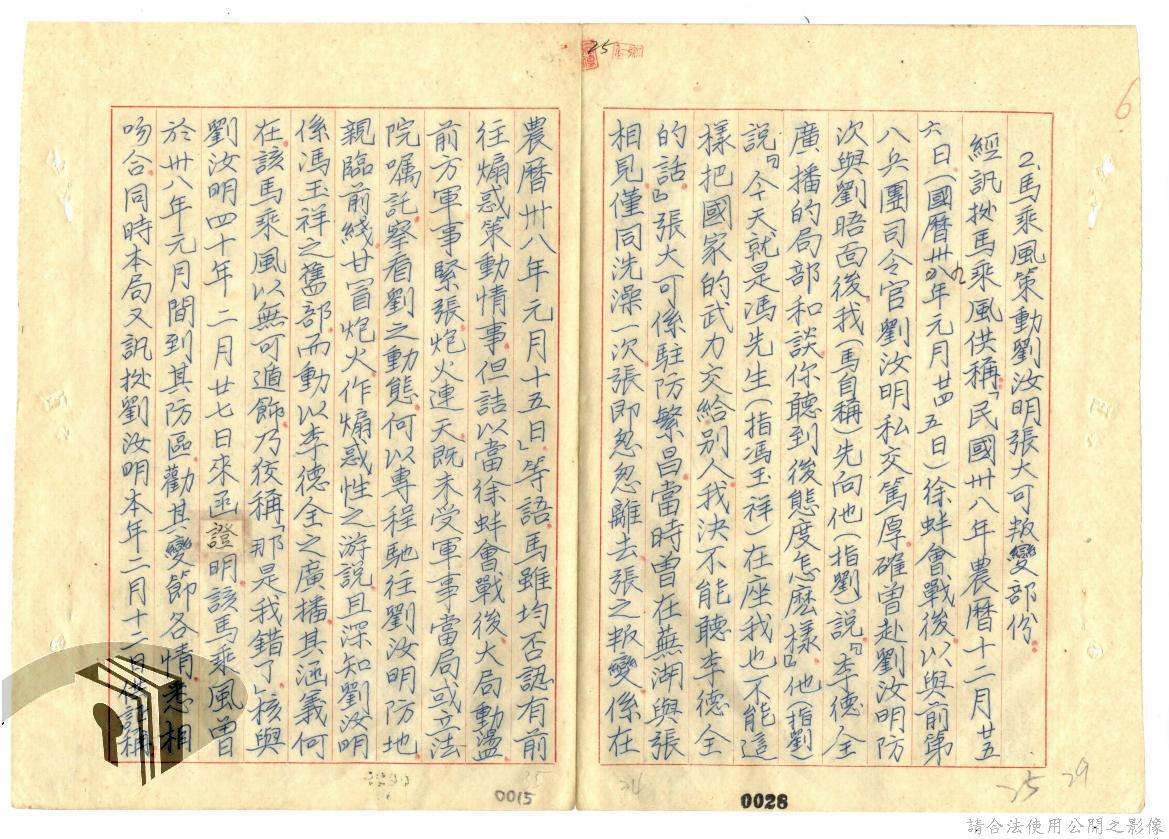 25
6
2.馬乘風策動劉汝明張大可叛變部份
經訊据馬乘風供稱「民國卅八年農曆十二月廿五
六日(國曆卅八九年元月廿四五日)徐蚌會戰後以與前第
八兵團司令官劉汝明私交篤厚確曾赴劉汝明防
次與劉晤面後我(馬自稱)先向他(指劉)說『李德全
廣播的局部和談你聽到後態度怎麼樣』他(指劉)
說『今天就是馮先生(指馮玉祥)在座我也不能這
樣把國家的武力交給別人我決不能聽李德全
的話』張大可係駐防繁昌當時曾在蕪湖與張
相見僅同洗澡一次張即怱怱離去張之叛變係在
農曆卅八年元月十五日」等語馬雖均否認有前
往煽惑策動情事但詰以當徐蚌會戰後大局動盪
前方軍事緊張炮火連天既未受軍事當局或立法
院囑託察看劉之動態何以專程馳往劉汝明防地
親臨前綫甘冒炮火作煽惑性之游說且深知劉汝明
係馮玉祥之舊部而動以李德全之廣播其涵義何
在該馬乘風以無可遁飾乃狡稱「那是我錯了」核與
劉汝明四十年二月廿七日來函證明該馬乘風曾
於卅八年元月間到其防區勸其變節各情悉相
吻合同時本局又訊据劉汝明本年二月十二日供証稱
24
25
29
0015
0028
請合法使用公開之影像